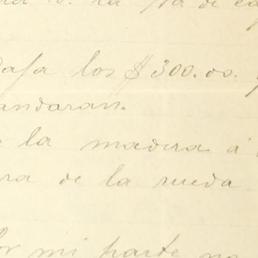 la
los $300.00.
mandaran.
la madera á
ra de la rueda
Por mi parte no